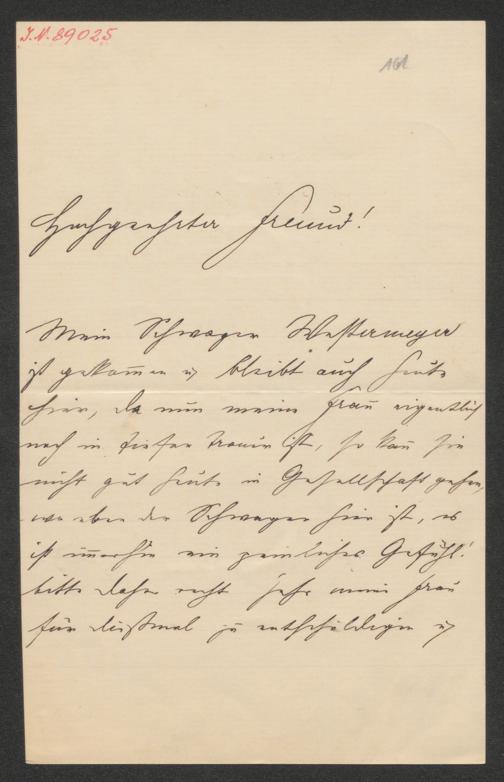 J.N. 89025
Hochgeehrter Freund!
Mein Schwager Westermeyer
ist gekom̄en u bleibt auch heute
hier, da nun meine Frau eigentlich
noch in tiefer Trauer ist, so kan̄ sie
nicht gut heute in Gesellschaft gehen,
wo eben der Schwager hier ist, es
ist im̄erhin ein peinliches Gefühl!
bitte daher recht sehr meine Frau
für diesmal zu entschuldigen u